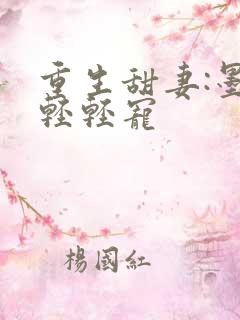 重生甜妻:墨
輕輕寵
楊國紅